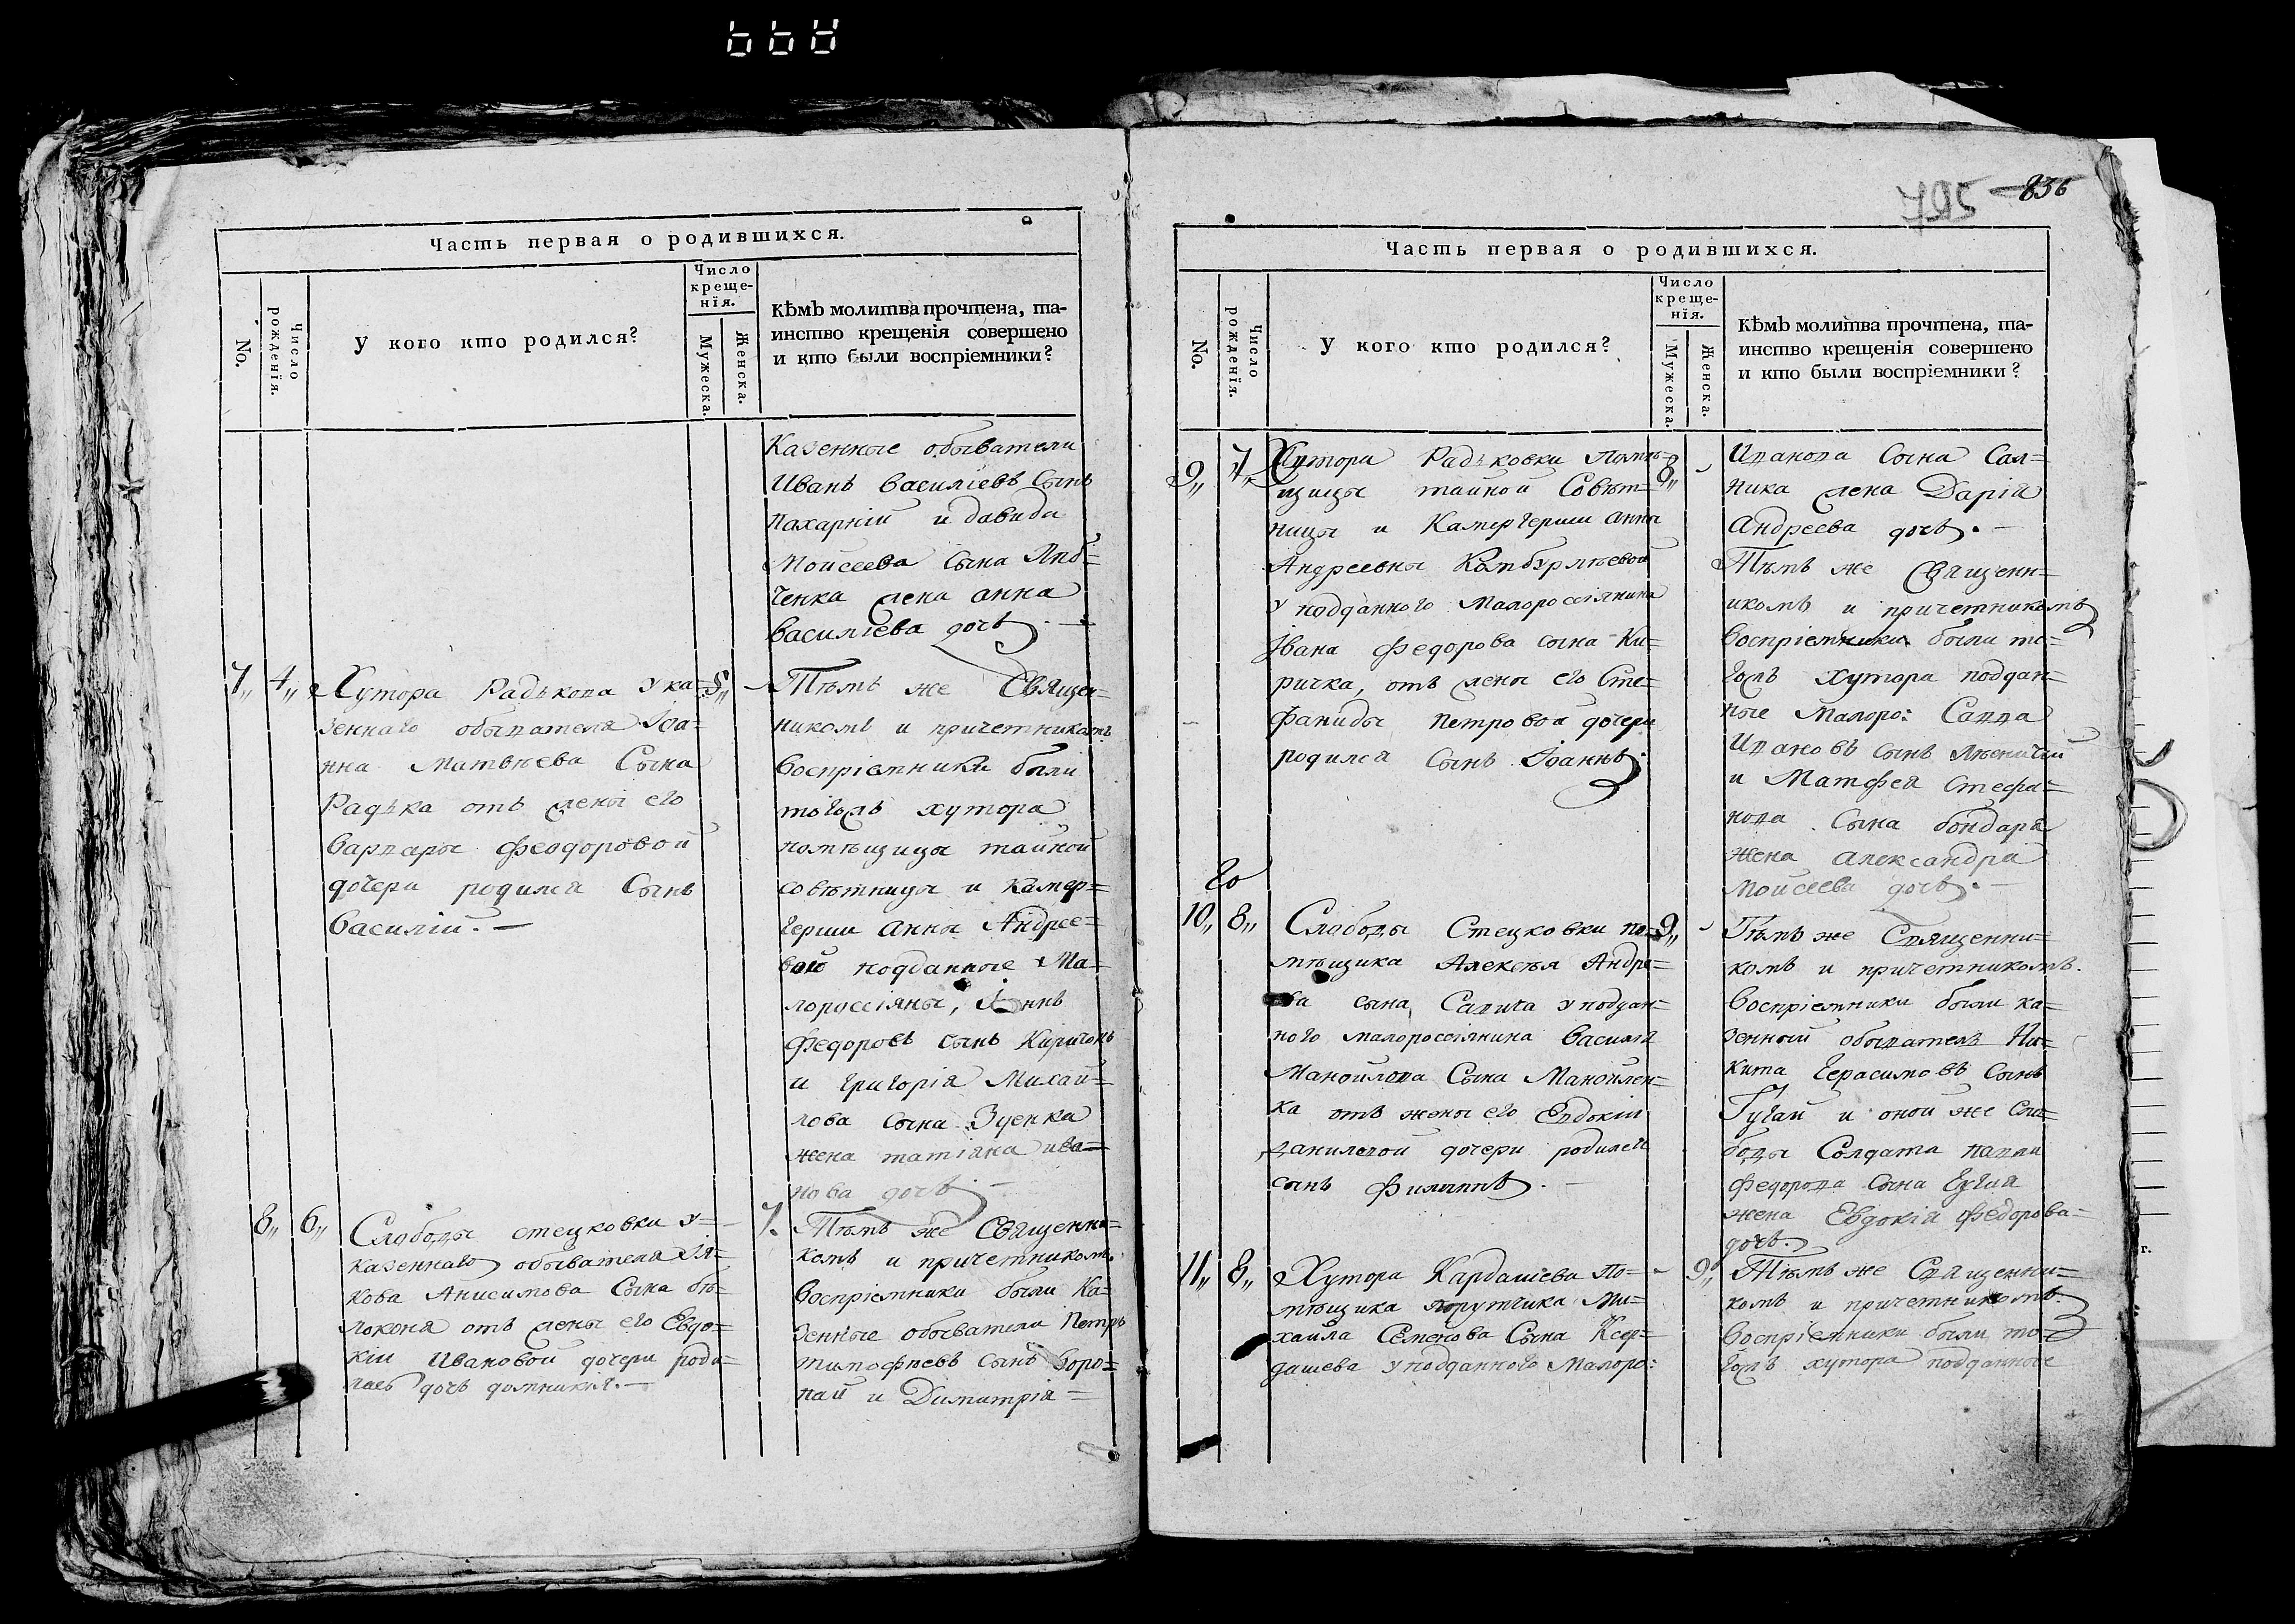 Часть первая о родившихся.
No.
Число рожденїя.
У кого кто родился?
Число
креще-
нїя.
Мужеска.
Женска.
Кѣмъ молитва прочтена, та-
инство крещенія совершено
и кто были воспріемники?
Казенные обыватели
Иванъ Василіевъ Сынъ
Пахарній и давида
Моисеева Сына
ченка жена анна
Василіева дочь. —
7„ 4„ Хутора Радькова у ка=
зеннаго обывателя Іоа=
нна Матвѣева Сына
Радька отъ жены его
Варвары Феодоровой
дочери родился Сынъ
Василій. —
5„
Тѣмъ же Священ=
никомъ и причетникомъ
Воспріемники были
тогожъ хутора
помѣщицы тайной
совѣтницы и камер=
герши Анны Андрее=
вой подданные Ма=
лороссіяны,
Федоровъ сынъ Киричокъ
и Григорія Михай=
лова Сына Зуенка
жена татіана ива=
нова дочь. —
8„ 6„ Слободы стецковки у=
казеннаго обывателя Ія=
кова Анисимова Сына бѣ=
локоня отъ жены его Евдо=
кіи Ивановой дочери роди=
лась дочь домникія. —
7.
Тѣмъ же Священни=
комъ и причетникомъ.
Воспріемники были Ка=
зенные обыватели Петръ
тимофѣевъ сынъ Боро=
пай и Димитрія =
795 836
Часть первая о родившихся.
No.
Число рожденїя.
У кого кто родился?
Число
креще-
нїя.
Мужеска.
Женска.
Кѣмъ молитва прочтена, та-
инство крещенія совершено
и кто были воспріемники?
9„ 7„ Хутора Радьковки помѣ=
щицы тайной Совѣт=
ницы и Камергерши анны
Андреевны Комбурлѣевой
у подданного Малороссіянина
Івана Федорова сына Ки=
ричка, отъ жены его Сте=
фаниды Петровой дочери
родился Сынъ Іоаннъ.
8„
Иванова Сына Сал=
ника жена Дарія
Андреева дочь. —
Тѣмъ же Священн=
икомъ и причетникомъ
Воспріемники были то=
гожъ хутора поддан=
ные Малоро: Савва
Ивановъ сынъ
и Матфея Стефа=
нова Сына бондаря
жена александра
Моисеева дочь. —
10„ 8„ Слободы Стецковки по=
мѣщика Алексѣя Андре=
ева сына Савича у поддан=
ного малороссіянина Василія
Манойлова Сына Манойлен=
ка отъ жены его Евдокіи
даниловой дочери родился
сынъ Филиппъ. —
9„
Тѣмъ же Священни=
комъ и причетникомъ.
Воспріемники были ка=
зенный обыватель Ни=
кита Герасимовъ Сынъ
Гугай и оной же сло=
боды Солдата павла
Федорова Сына
жена Евдокія Федорова=
дочь.
11„ 8„ Хутора Кардашева По=
мѣщика порутчика Ми=
хайла Семенова Сына
дашева у подданного Малоро:
9„
Тѣмъ же Священни=
комъ и причетникомъ.
Воспріемники были то=
гожъ хутора подданные